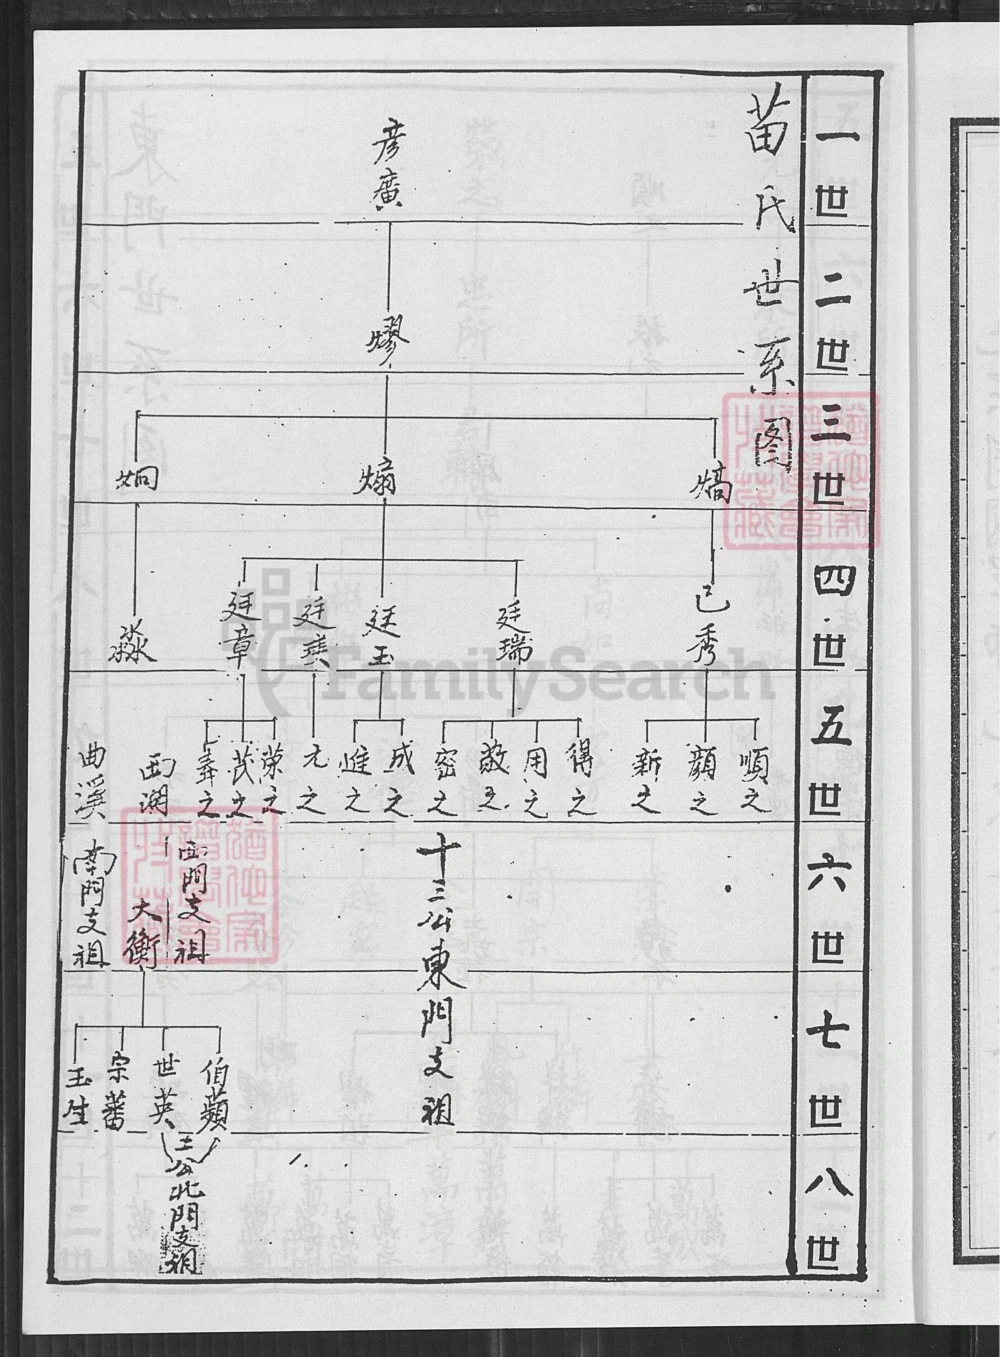 一世
二世
三世
四世
五世
六世
七世
八世
苗氏世系图
彦廣
熮
熇
煽
炯
已秀
廷瑞
廷玉
廷章
淼
順之
顔之
新之
得之
用之
敬之
密之
成之
進之
元之
荣之
茂之
彝之
西湖
曲溪
十三公東門支祖
西門支祖
大衡
南門支祖
伯蘋
世英
宗蕃
玉生
三公北門支祖
FamilySearch